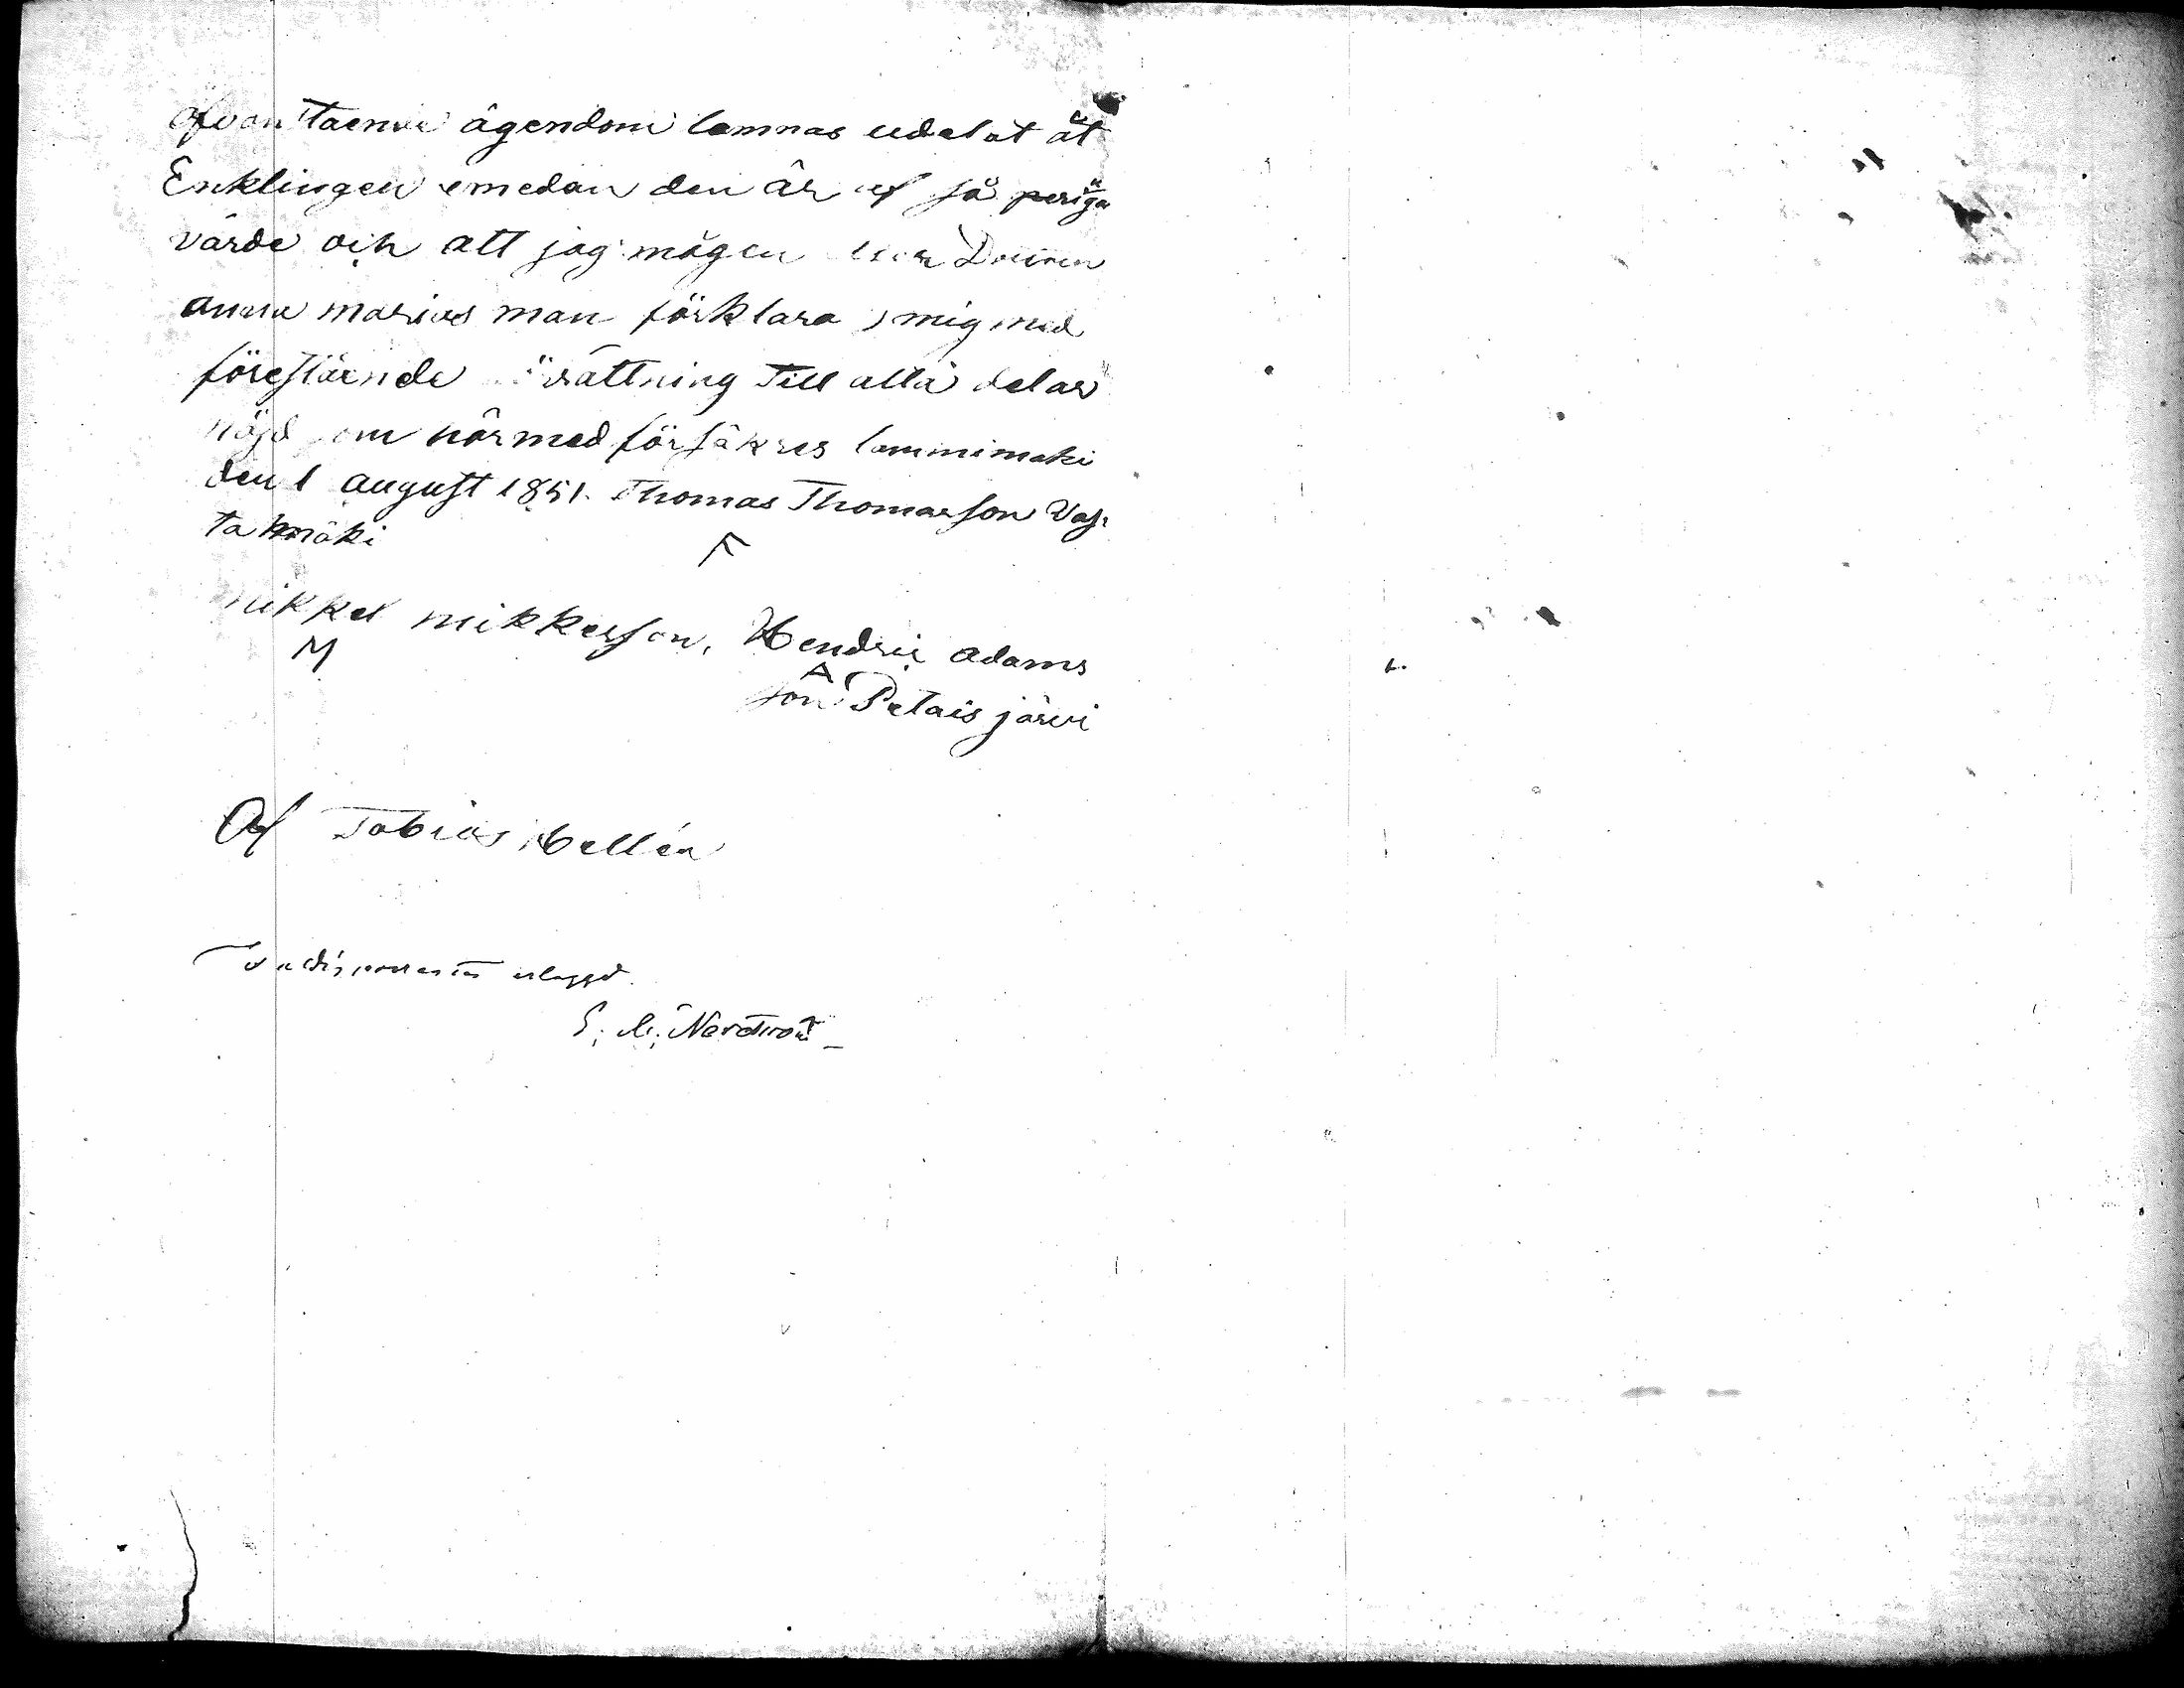 ofvanstaende ägendom lemnas udelat åt
Enklingen emedan den är af så periga
värde och att jag mögen
anna marias man förklara mig med
föreståënde rättning till alla delar
nöjd som härmed försäkres lammimäki
den 1 august 1851. Thomas Thomasson Vas:
tamäki
mikkel mikkelsson, Hendric adams
M
A
son Petais järvi
Af Tobias Hellén
erlagd.
Nordström